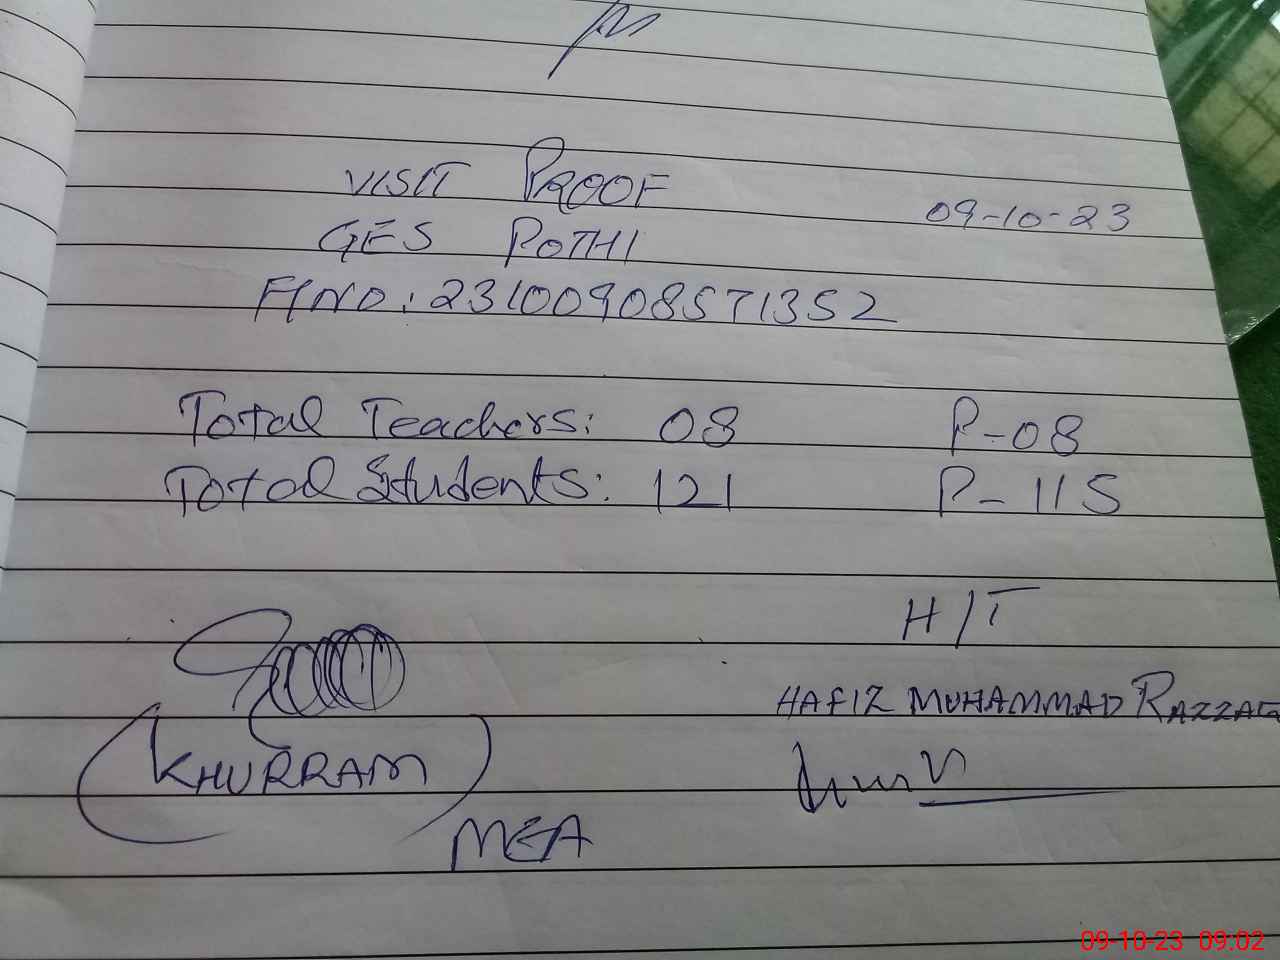 VISIT PROOF
09-10-23
GES POTHI
F/NO: 23100908571352
Total Teachers: 08 P-08
Total Students: 121 P-115
H/T
HAFIZ MUHAMMAD RAZZAQ
(KHURRAM)
MEA
09-10-23 09:02